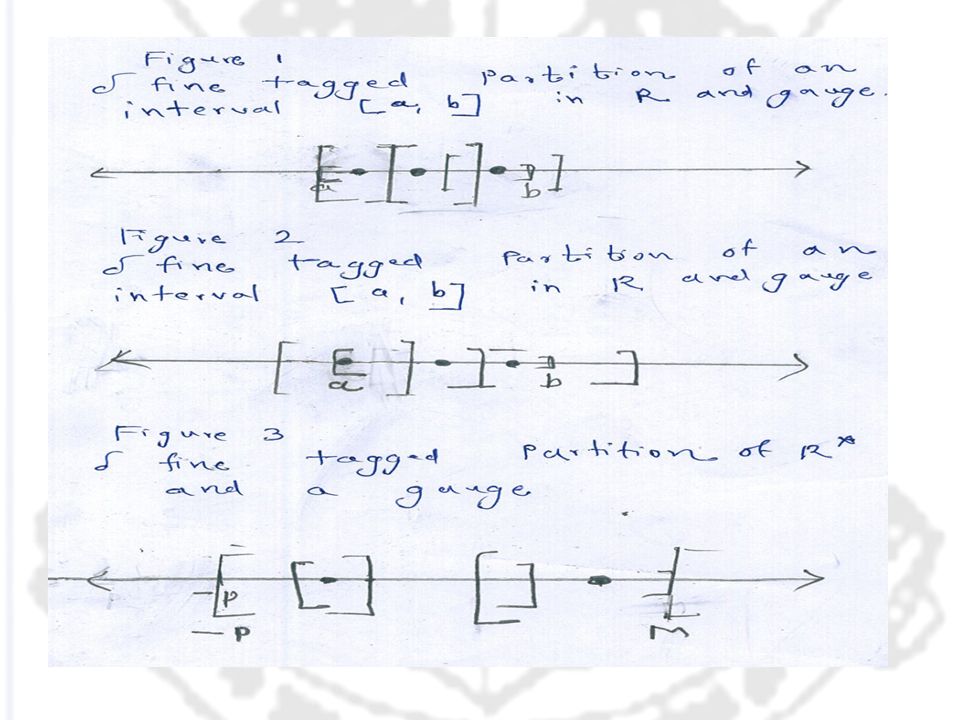 Figure 1
δ fine tagged partition of an
interval [a, b] in R and gauge.
a b
Figure 2
δ fine tagged partition of an
interval [a, b] in R and gauge
a b
Figure 3
δ fine tagged partition of R*
and a gauge
-P
-P